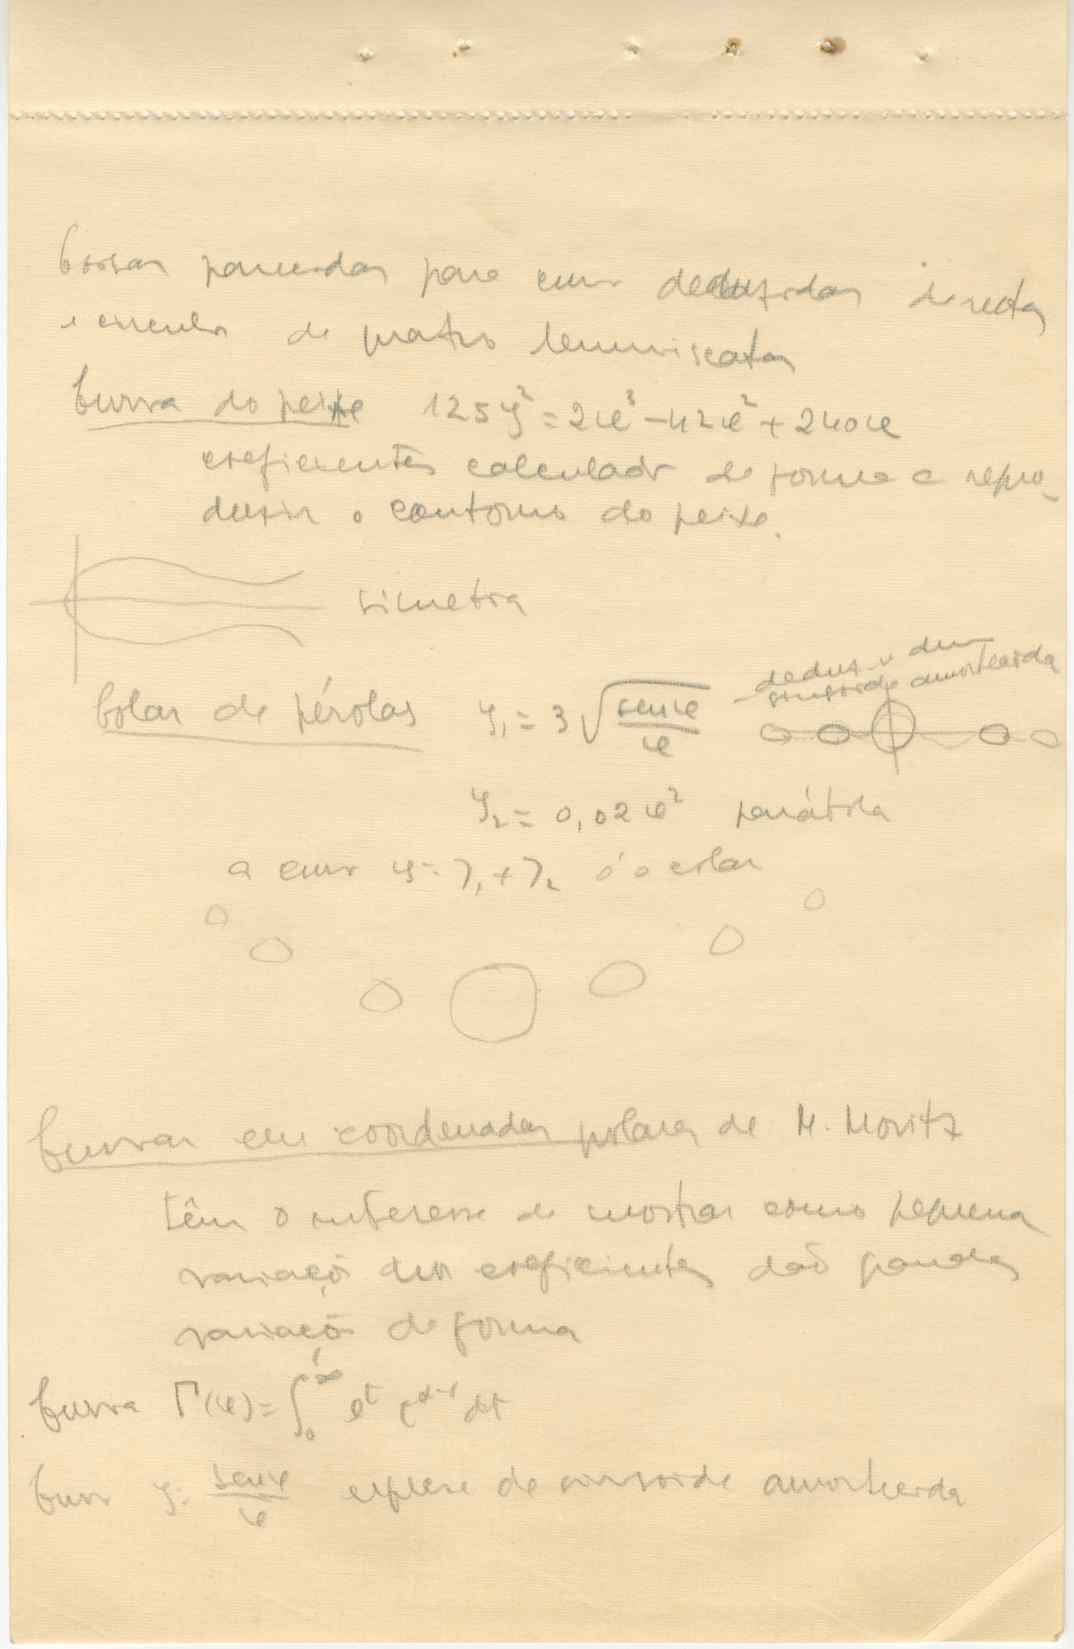 Coisas parecidas para curvas deduzidas de recta
e círculo de quatro lemniscatas
Curva do peixe 125y² = 21x³ - 42x² + 240x
coeficientes calculados de forma a repro-
duzir o contorno do peixe.
simetria
Colar de pérolas y₁ = 3√(senx/x) deduz-se duma
sinusoide amortecida
y₂ = 0,02x² parábola
a curva y = y₁ + y₂ é o colar
Curvas em coordenadas polares de M. Moritz
têm o interesse de mostrar como pequena
variação dos coeficientes dão grandes
variações de forma
Curva Γ(x) = ∫₀^∞ e^t t^(x-1) dt
Curva y = senx/x espécie de sinusoide amortecida